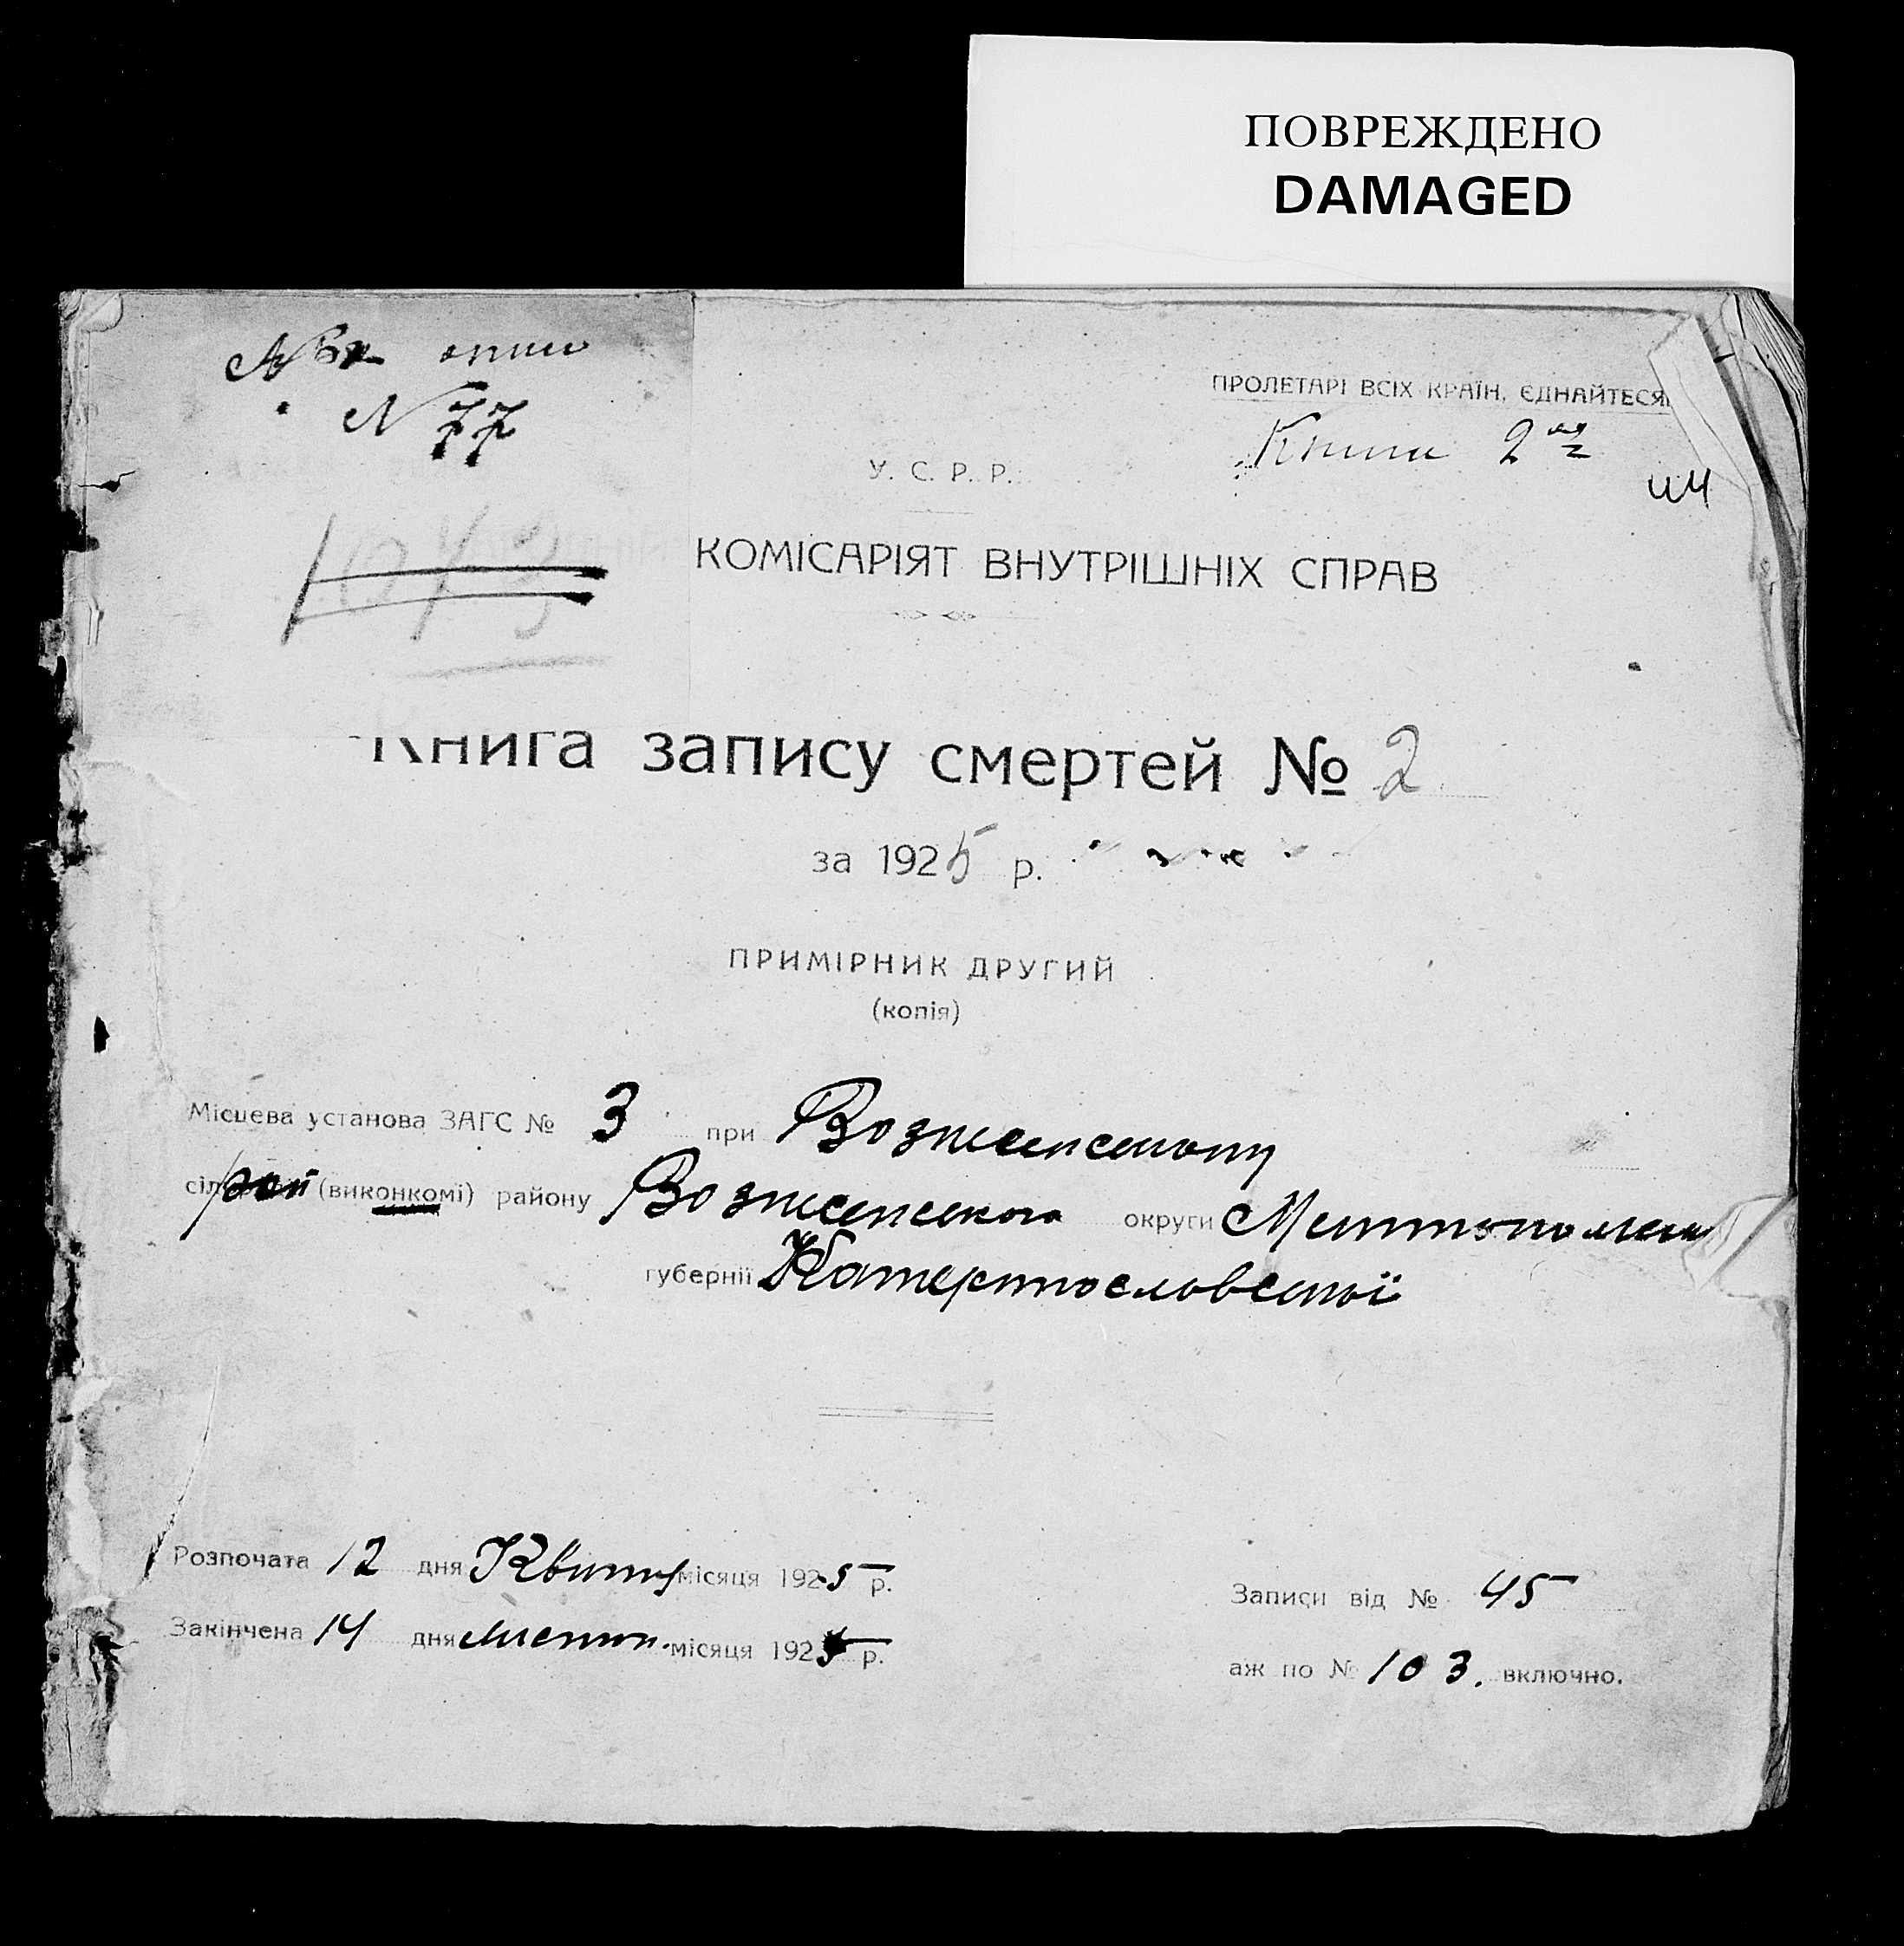 ПОВРЕЖДЕНО
DAMAGED
опис
N 77
ПРОЛЕТАРІ ВСІХ КРАЇН, ЄДНАЙТЕСЯ
Книга 2ая
У. С. Р. Р.
КОМІСАРІЯТ ВНУТРІШНІХ СПРАВ
Книга запису смертей № 2
за 1925 р.
ПРИМІРНИК ДРУГИЙ
(копія)
Місцева установа ЗАГС № 3 при Вознесенскому
(виконкомі) району Вознесенского округи
губернії Катеринославської
Розпочата 12 дня Квітня місяця 1925 р.
Закінчена 14 дня Листоп. місяця 1925 р.
Записи від № 45
аж по № 103. включно.